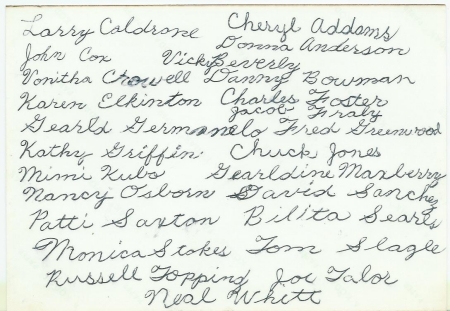 Larry Caldrone Cheryl Addams
Donna Anderson
John Cox Vicky Beverly
Vonitha Crowell Danny Bowman
Karen Elkinton Charles Foster
Jacob Fraly
Gearld Germanalo Fred Greenwood
Kathy Griffin Chuck Jones
Mimi Kubo Gearldine Maxberry
Nancy Osborn David Sanchez
Patti Saxton Bilita Searls
Monica Stokes Tom Slagle
Russell Topping Joe Talor
Neal Whitt